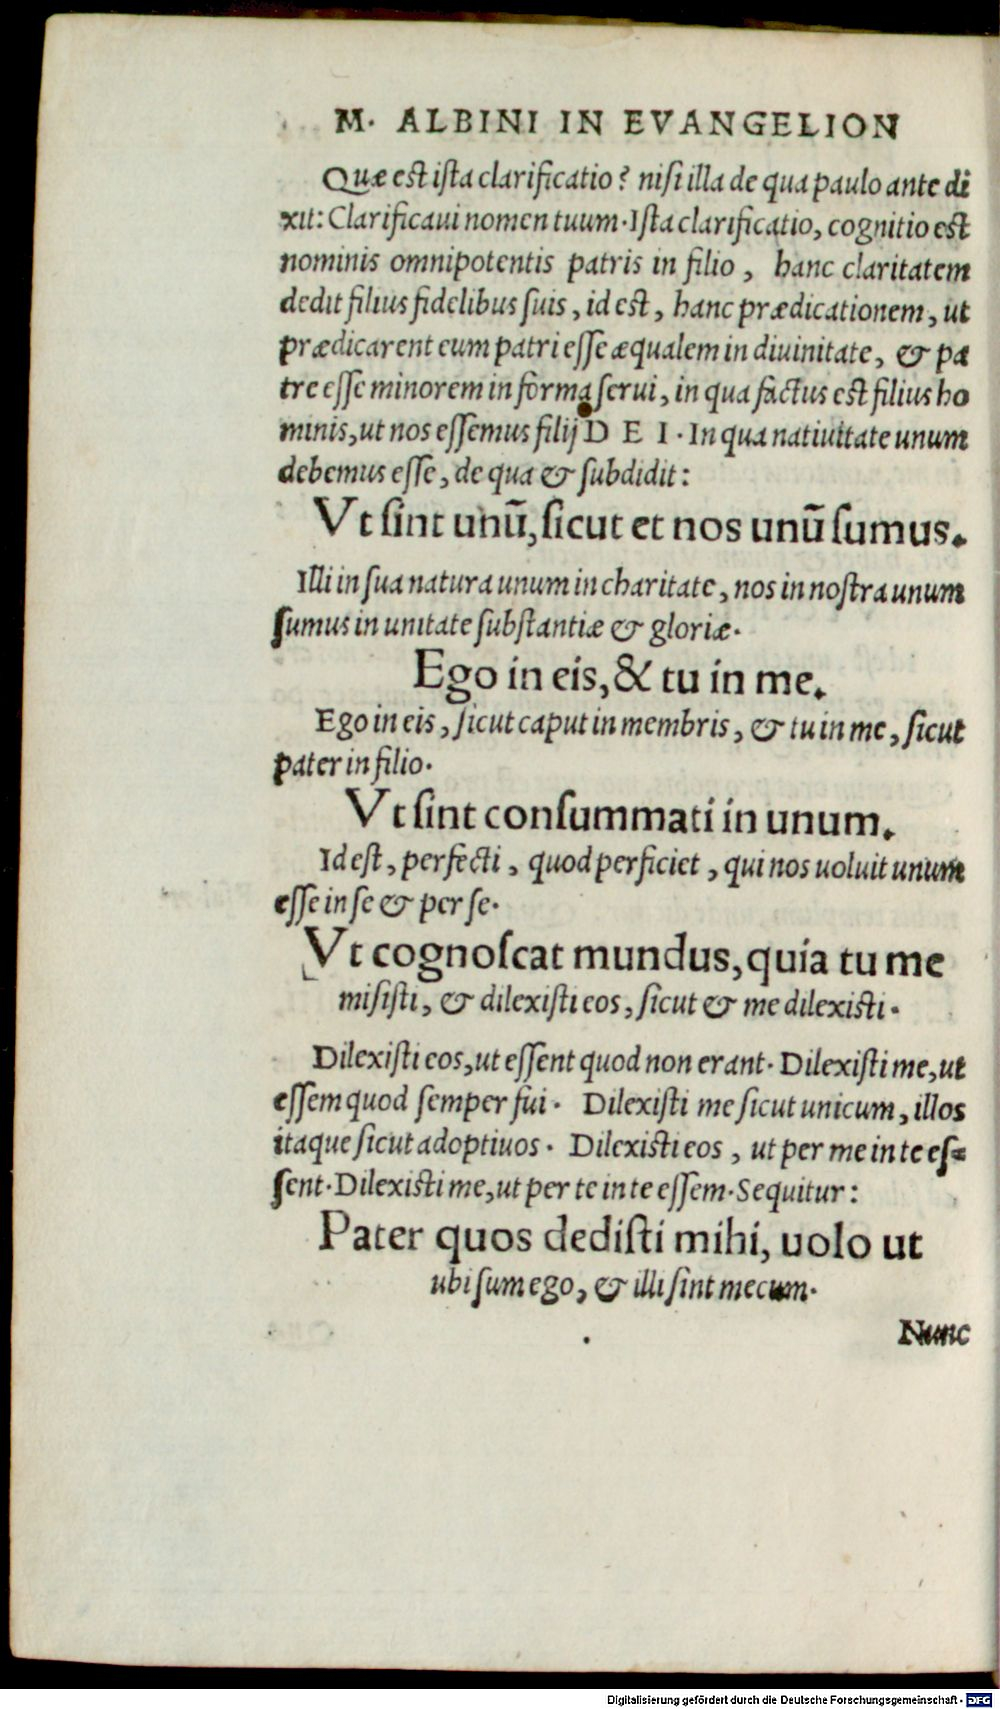 M. ALBINI IN EVANGELION
Quæ est ista clarificatio? nisi illa de qua paulo ante di
xit: Clarificaui nomen tuum. Ista clarificatio, cognitio est
nominis omnipotentis patris in filio, hanc claritatem
dedit filius fidelibus suis, id est, hanc prædicationem, ut
prædicarent eum patri esse æqualem in diuinitate, & pa
tre esse minorem in forma serui, in qua factus est filius ho
minis, ut nos essemus filij D E I. In qua natiuitate unum
debemus esse, de qua & subdidit:
Vt sint unū, sicut et nos unū sumus.
Illi in sua natura unum in charitate, nos in nostra unum
sumus in unitate substantiæ & gloriæ.
Ego in eis, & tu in me.
Ego in eis, sicut caput in membris, & tu in me, sicut
pater in filio.
Vt sint consummati in unum.
Id est, perfecti, quod perficiet, qui nos uoluit unum
esse in se & per se.
Vt cognoscat mundus, quia tu me
misisti, & dilexisti eos, sicut & me dilexisti.
Dilexisti eos, ut essent quod non erant. Dilexisti me, ut
essem quod semper fui. Dilexisti me sicut unicum, illos
itaque sicut adoptiuos. Dilexisti eos, ut per me in te es=
sent. Dilexisti me, ut per te in te essem. Sequitur:
Pater quos dedisti mihi, uolo ut
ubi sum ego, & illi sint mecum.
Nunc
Digitalisierung gefördert durch die Deutsche Forschungsgemeinschaft - DFG